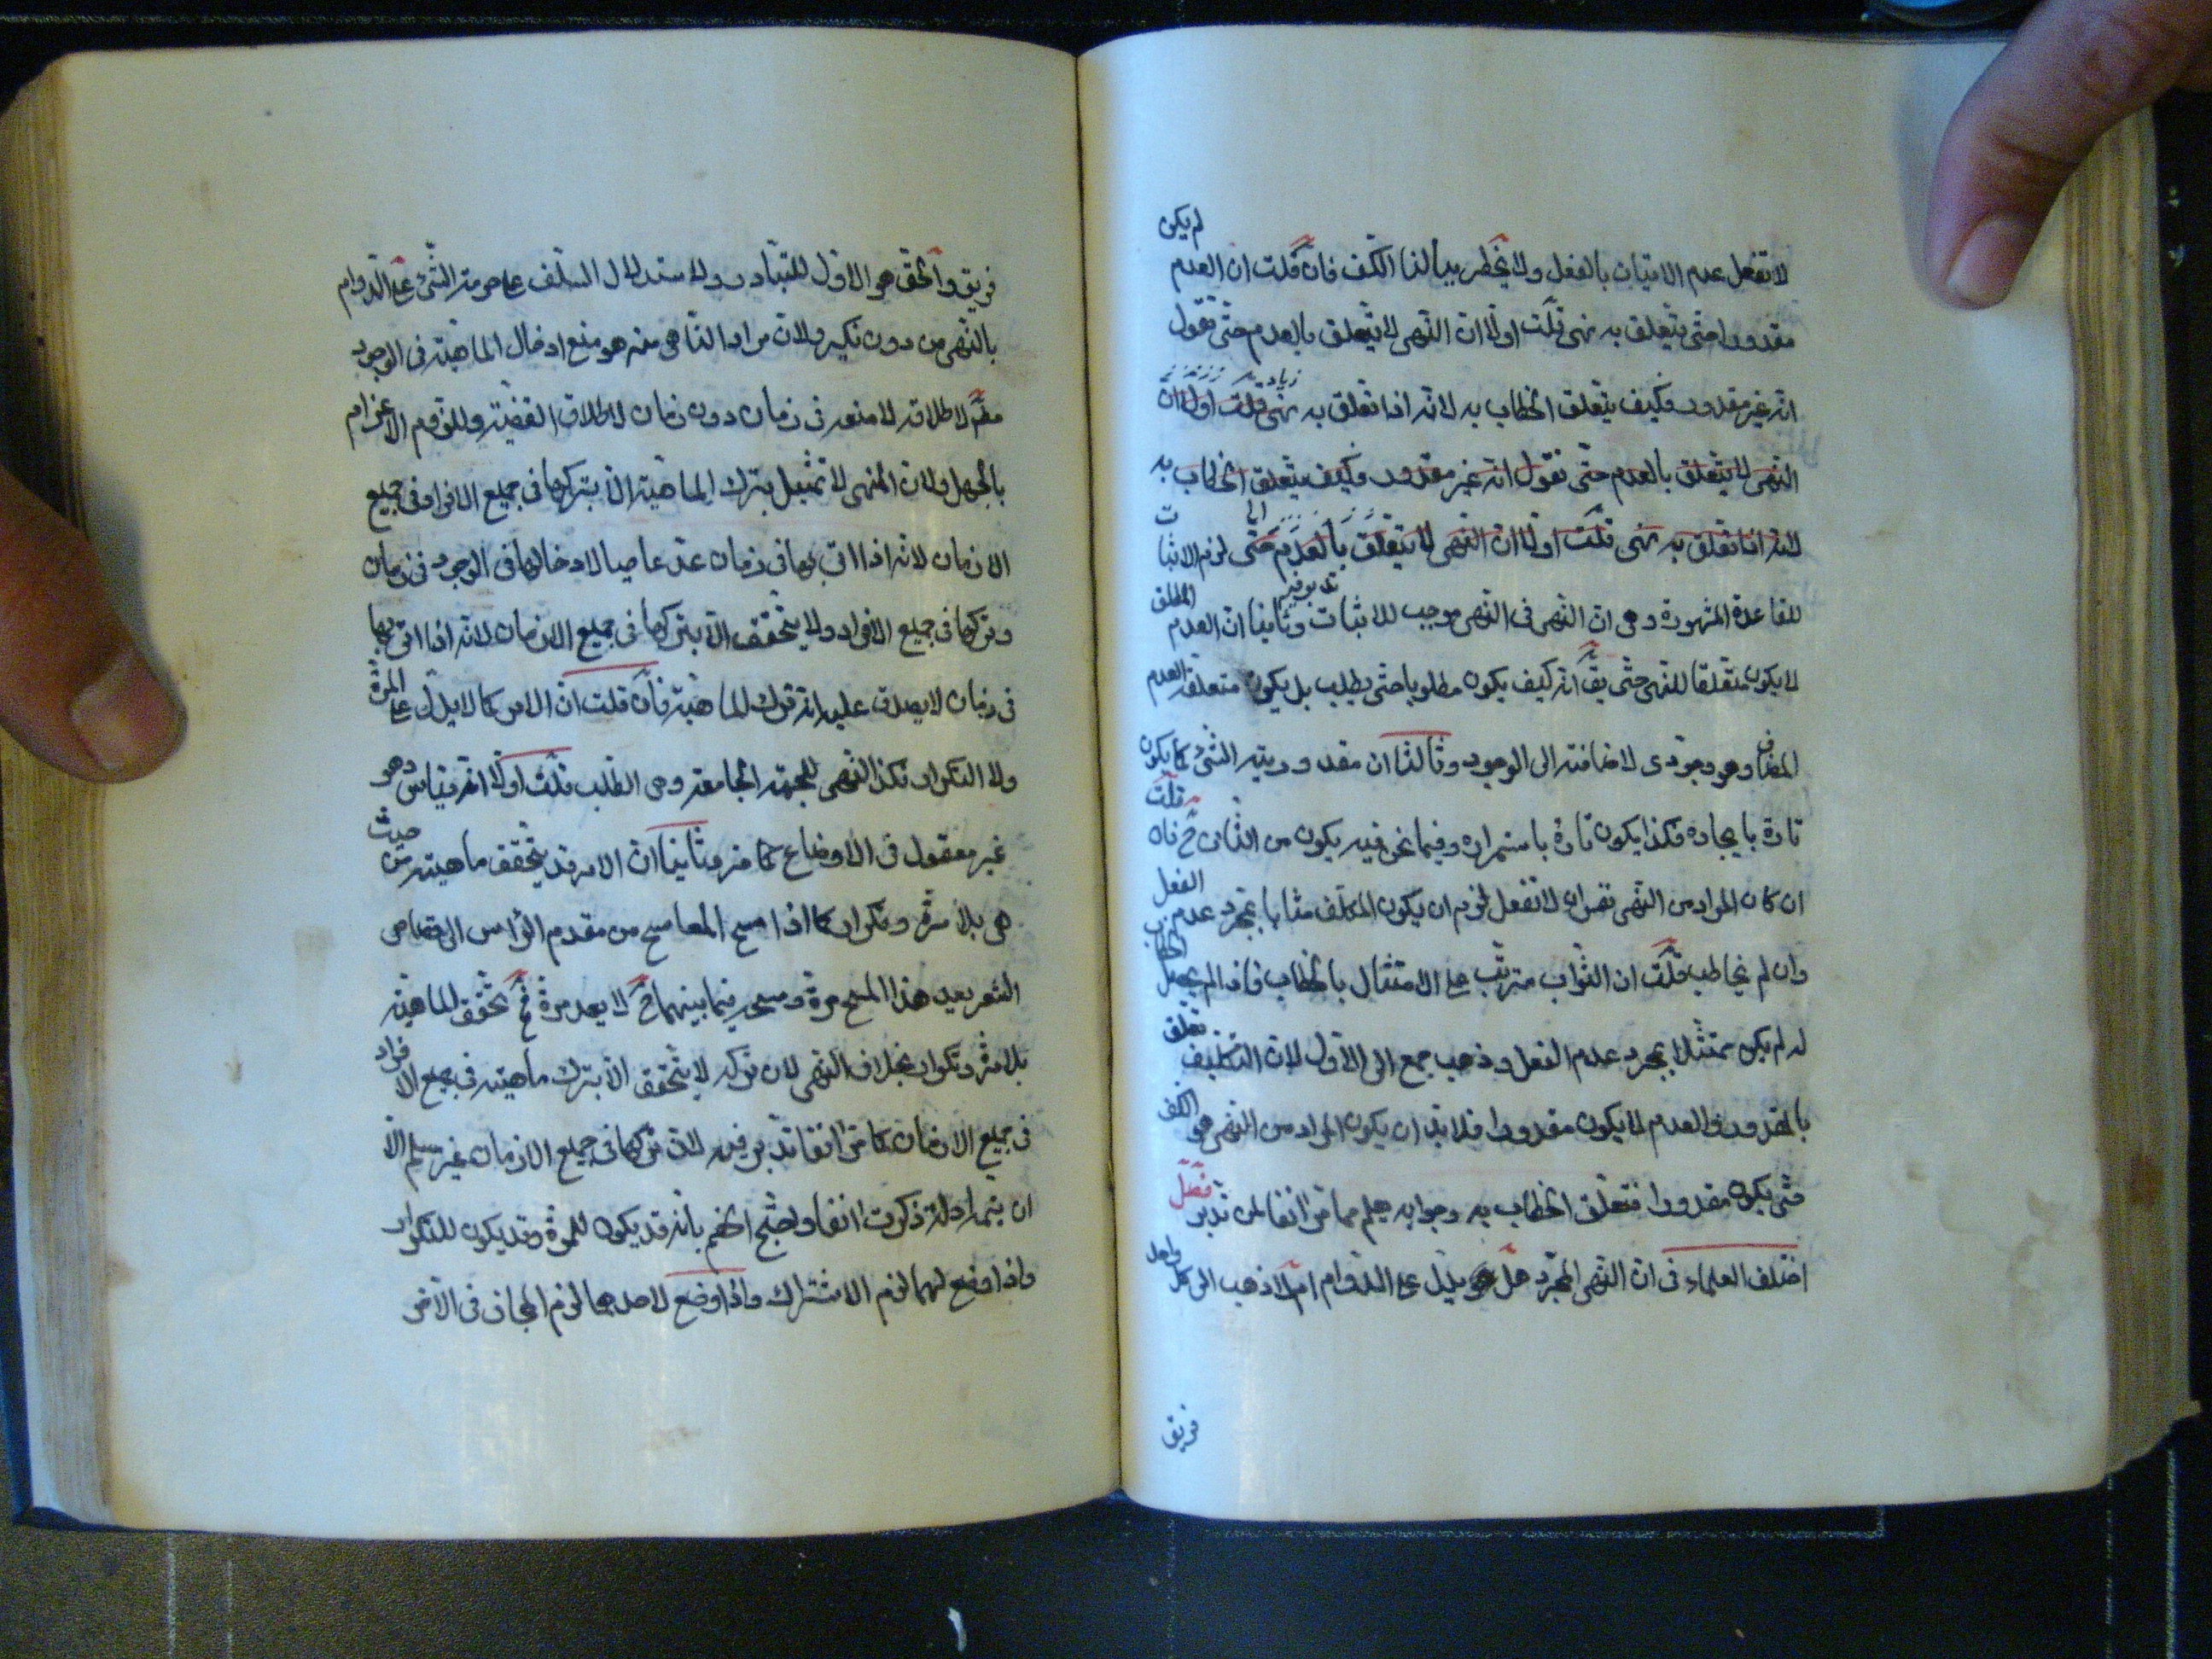 لا تفعل عدم الاتيان بالفعل ولا يخطر ببالنا الكف فان قلت ان العدم لم يكن
مقدورا حتى يتعلق به نهى قلت اولا ان النهى لا يتعلق بالعدم حتى تقول
انه غير مقدور فكيف يتعلق الخطاب به لانه اذا تعلق به نهى قلت اولا ان
النهى لا يتعلق بالعدم حتى تقول انه غير مقدور فكيف يتعلق الخطاب به
لانه اذا تعلق به نهى قلت اولا ان النهى لا يتعلق بالعدم حتى لزم الاثبات
للقاعدة المشهورة وهى ان النهى فى النهى موجب للاثبات تدبر فيه وثانيا ان العدم المطلق
لا يكون متعلقا للنهى حتى يق انه كيف يكون مطلوبا حتى يطلب بل يكون متعلقه العدم
المضاف وهو وجودى لاضافته الى الوجود وثالثا ان مقدورية الشئ كما يكون
تارة بايجاده فكذا يكون تارة باستمراره وفيما نحن فيه يكون من الثانى ح فان قلت
ان كان المراد من النهى نفس ان لا تفعل لزم ان يكون المكلف مثابا بمجرد عدم الفعل
وان لم يخاطب قلت ان الثواب مترتب على الامتثال بالخطاب فاذا لم يحصل الخطاب
له لم يكن ممتثلا بمجرد عدم الفعل وذهب جمع الى الاول لان التكليف تعلق
بالمقدور والعدم لا يكون مقدورا فلا بد ان يكون المراد من النهى هو الكف
حتى يكون مقدورا فتعلق الخطاب به وجوابه يعلم مما مر انفا لمن تدبر فصل
اختلف العلماء فى ان النهى المجرد هل يدل على الدوام ام لا ذهب الى كل واحد
فريق
فريق والحق هو الاول للتبادر ولاستدلال السلف على حرمة الشئ على الدوام
بالنهى من دون نكير ولان مراد الناهى منه هو منع ادخال الماهية فى الوجود
لاطلاقه لا منعه فى زمان دون زمان لاطلاق القضية وللزوم الاغرام
بالجهل ولان المنهى لا تمثيل بترك الماهية الا بتركها فى جميع الافراد فى جميع
الازمان لانه اذا اتى بها فى زمان عد عاصيا لادخالها فى الوجود فى زمان
وتركها فى جميع الافراد ولا يتحقق الا بتركها فى جميع الازمان لانه اذا اتى بها
فى زمان لا يصدق عليه انه ترك الماهية فان قلت ان الامر كما لا يدل على المرة
ولا التكرار فكذا النهى للجهة الجامعة وهى الطلب قلت اولا انه قياس وهو
غير معقول فى الاوضاع كما مر وثانيا ان الامر قد يتحقق ماهيته من حيث
هى بلا مرة وتكرار كما اذا مسح الماسح من مقدم الرأس الى قصاص
الشعر يعد هذا المسح مرة ومسحه فيما بينهما ح لا يعد مرة فح تحقق الماهية
بلا مرة وتكرار بخلاف النهى لان تركه لا يتحقق الا بترك ماهيته فى جميع الافراد
فى جميع الازمان كما مر انفا تدبر فيه لان تركها فى جميع الازمان غير مسلم الا
ان يتم ادلة ذكرت انفا واحتج الخصم بانه قد يكون للمرة وقد يكون للتكرار
واذا وضع لهما لزم الاشتراك واذا وضع لاحدهما لزم المجاز فى الاخر